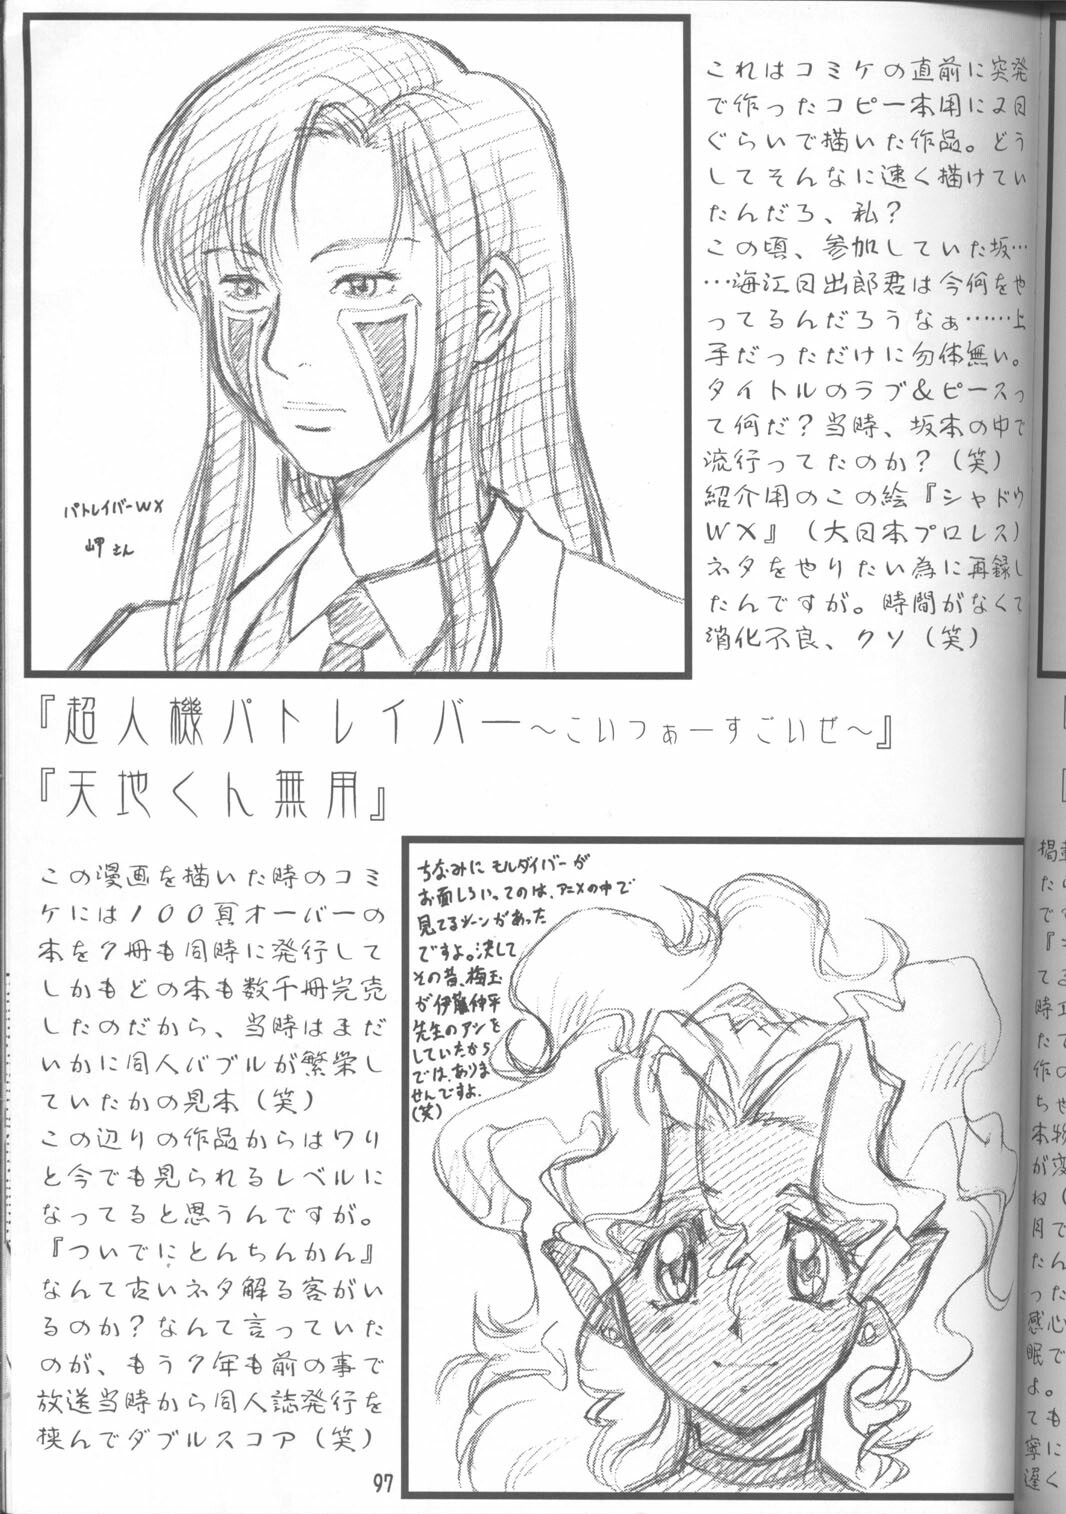 これはコミケの直前に突発
で作ったコピー本用に2日
ぐらいで描いた作品。どう
してそんなに速く描けてい
たんだろ、私?
この頃、参加していた坂…
…海江日出郎君は今何をや
ってるんだろうなぁ……上
手だっただけに勿体無い。
タイトルのラブ&ピースっ
て何だ?当時、坂本の中で
流行ってたのか?(笑)
紹介用のこの絵『シャドウ
WX』(大日本プロレス)
ネタをやりたい為に再録し
たんですが。時間がなくて
消化不良、クソ(笑)
パトレイバーWX
岬さん
『超人機パトレイバー~こいつぁーすごいぜ~』
『天地くん無用』
この漫画を描いた時のコミ
ケには100頁オーバーの
本を7冊も同時に発行して
しかもどの本も数千冊完売
したのだから、当時はまだ
いかに同人バブルが繁栄し
ていたかの見本(笑)
この辺りの作品からはワリ
と今でも見られるレベルに
なってると思うんですが。
『ついでにとんちんかん』
なんて古いネタ解る客がい
るのか?なんて言っていた
のが、もう7年も前の事で
放送当時から同人誌発行を
挟んでダブルスコア(笑)
97
ちなみにモルダイバーが
お面しろいってのは、アニメの中で
見てるシーンがあった
ですよ。決して
その昔、梅玉
が伊藤伸平
先生のアシを
していたから
では、ありま
せんですよ.
(笑)
掲
た
で
『
て
時
た
作の
ちゃ
本物
が変
ね(
月で
たん
った
感心
眠で
よ。
ても
寧に
遅く